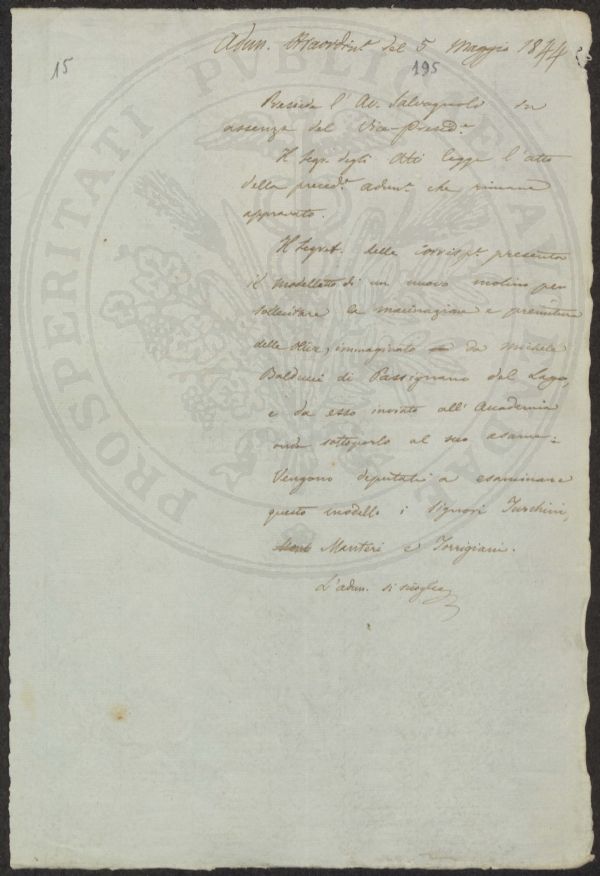 Adun. Straordin.ª del 5 Maggio 1844
15
195
Presiede l'Av. Salvagnoli in
assenza del Vice-Presid.e
Il Segr. degli Atti legge l'atto
della preced.e adun.ª che rimane
approvato.
Il Segret. delle Corrisp.e presenta
il modelletto di un nuovo molino per
sollecitare la macinazione e premitura
delle olive, immaginato da Michele
Balducci di Passignano del Lago,
e da esso inviato all'Accademia
onde sottoporlo al suo esame.
Vengono deputati a esaminare
questo modello i Signori Turchini,
Manteri e Torrigiani.
L'adun. si scioglie
PROSPERITATI PUBLICAE AUGENDAE